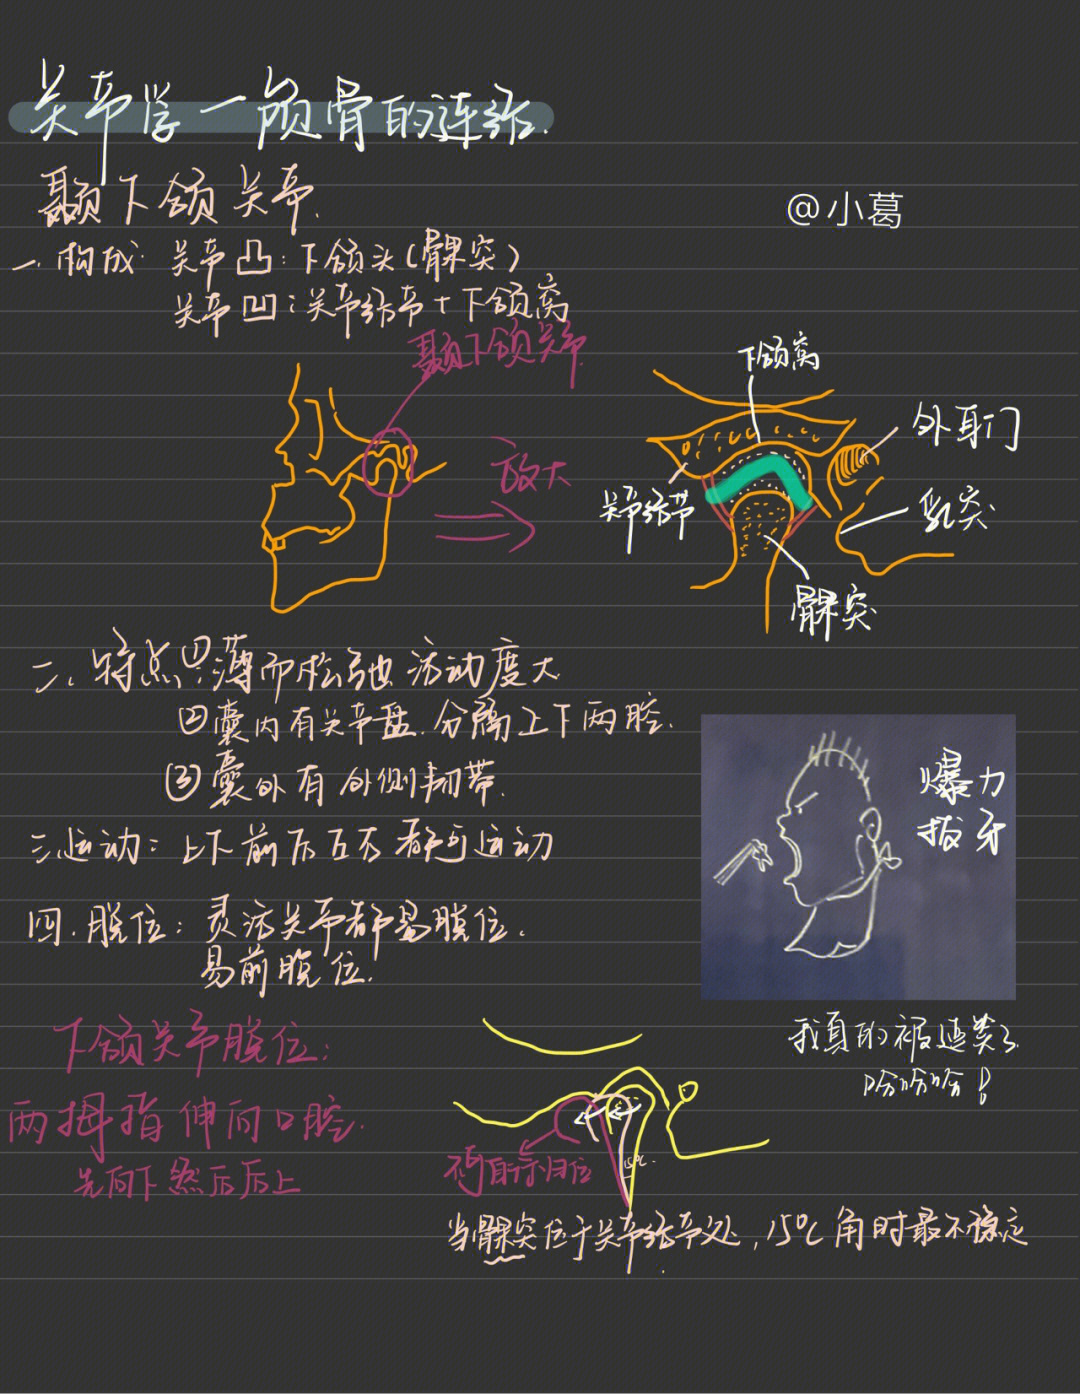 关节学一颅骨的连结.
颞下颌关节.
@小葛
一.构成:关节凸:下颌头(髁突)
关节凹:关节结节+下颌窝
颞下颌关节
下颌窝
外耳门
放大
关节结节
乳突
髁突
二、特点:①薄而松弛 活动度大
②囊内有关节盘.分隔上下两腔.
③囊外有外侧韧带.
三.运动:上下前后左右都可运动
爆力
拔牙
四.脱位:灵活关节都易脱位.
易前脱位.
下颌关节脱位:
我真的被逗笑了
哈哈哈!
两拇指伸向口腔.
先向下然后后上
不可自行归位
15℃.
当髁突位于关节结节处,15℃角时最不稳定